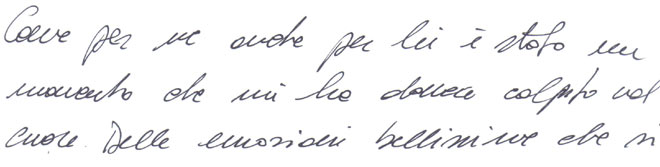 Come per me anche per lui è stato un
momento che mi ha davvero colpito nel
cuore. Delle emozioni bellissime che si